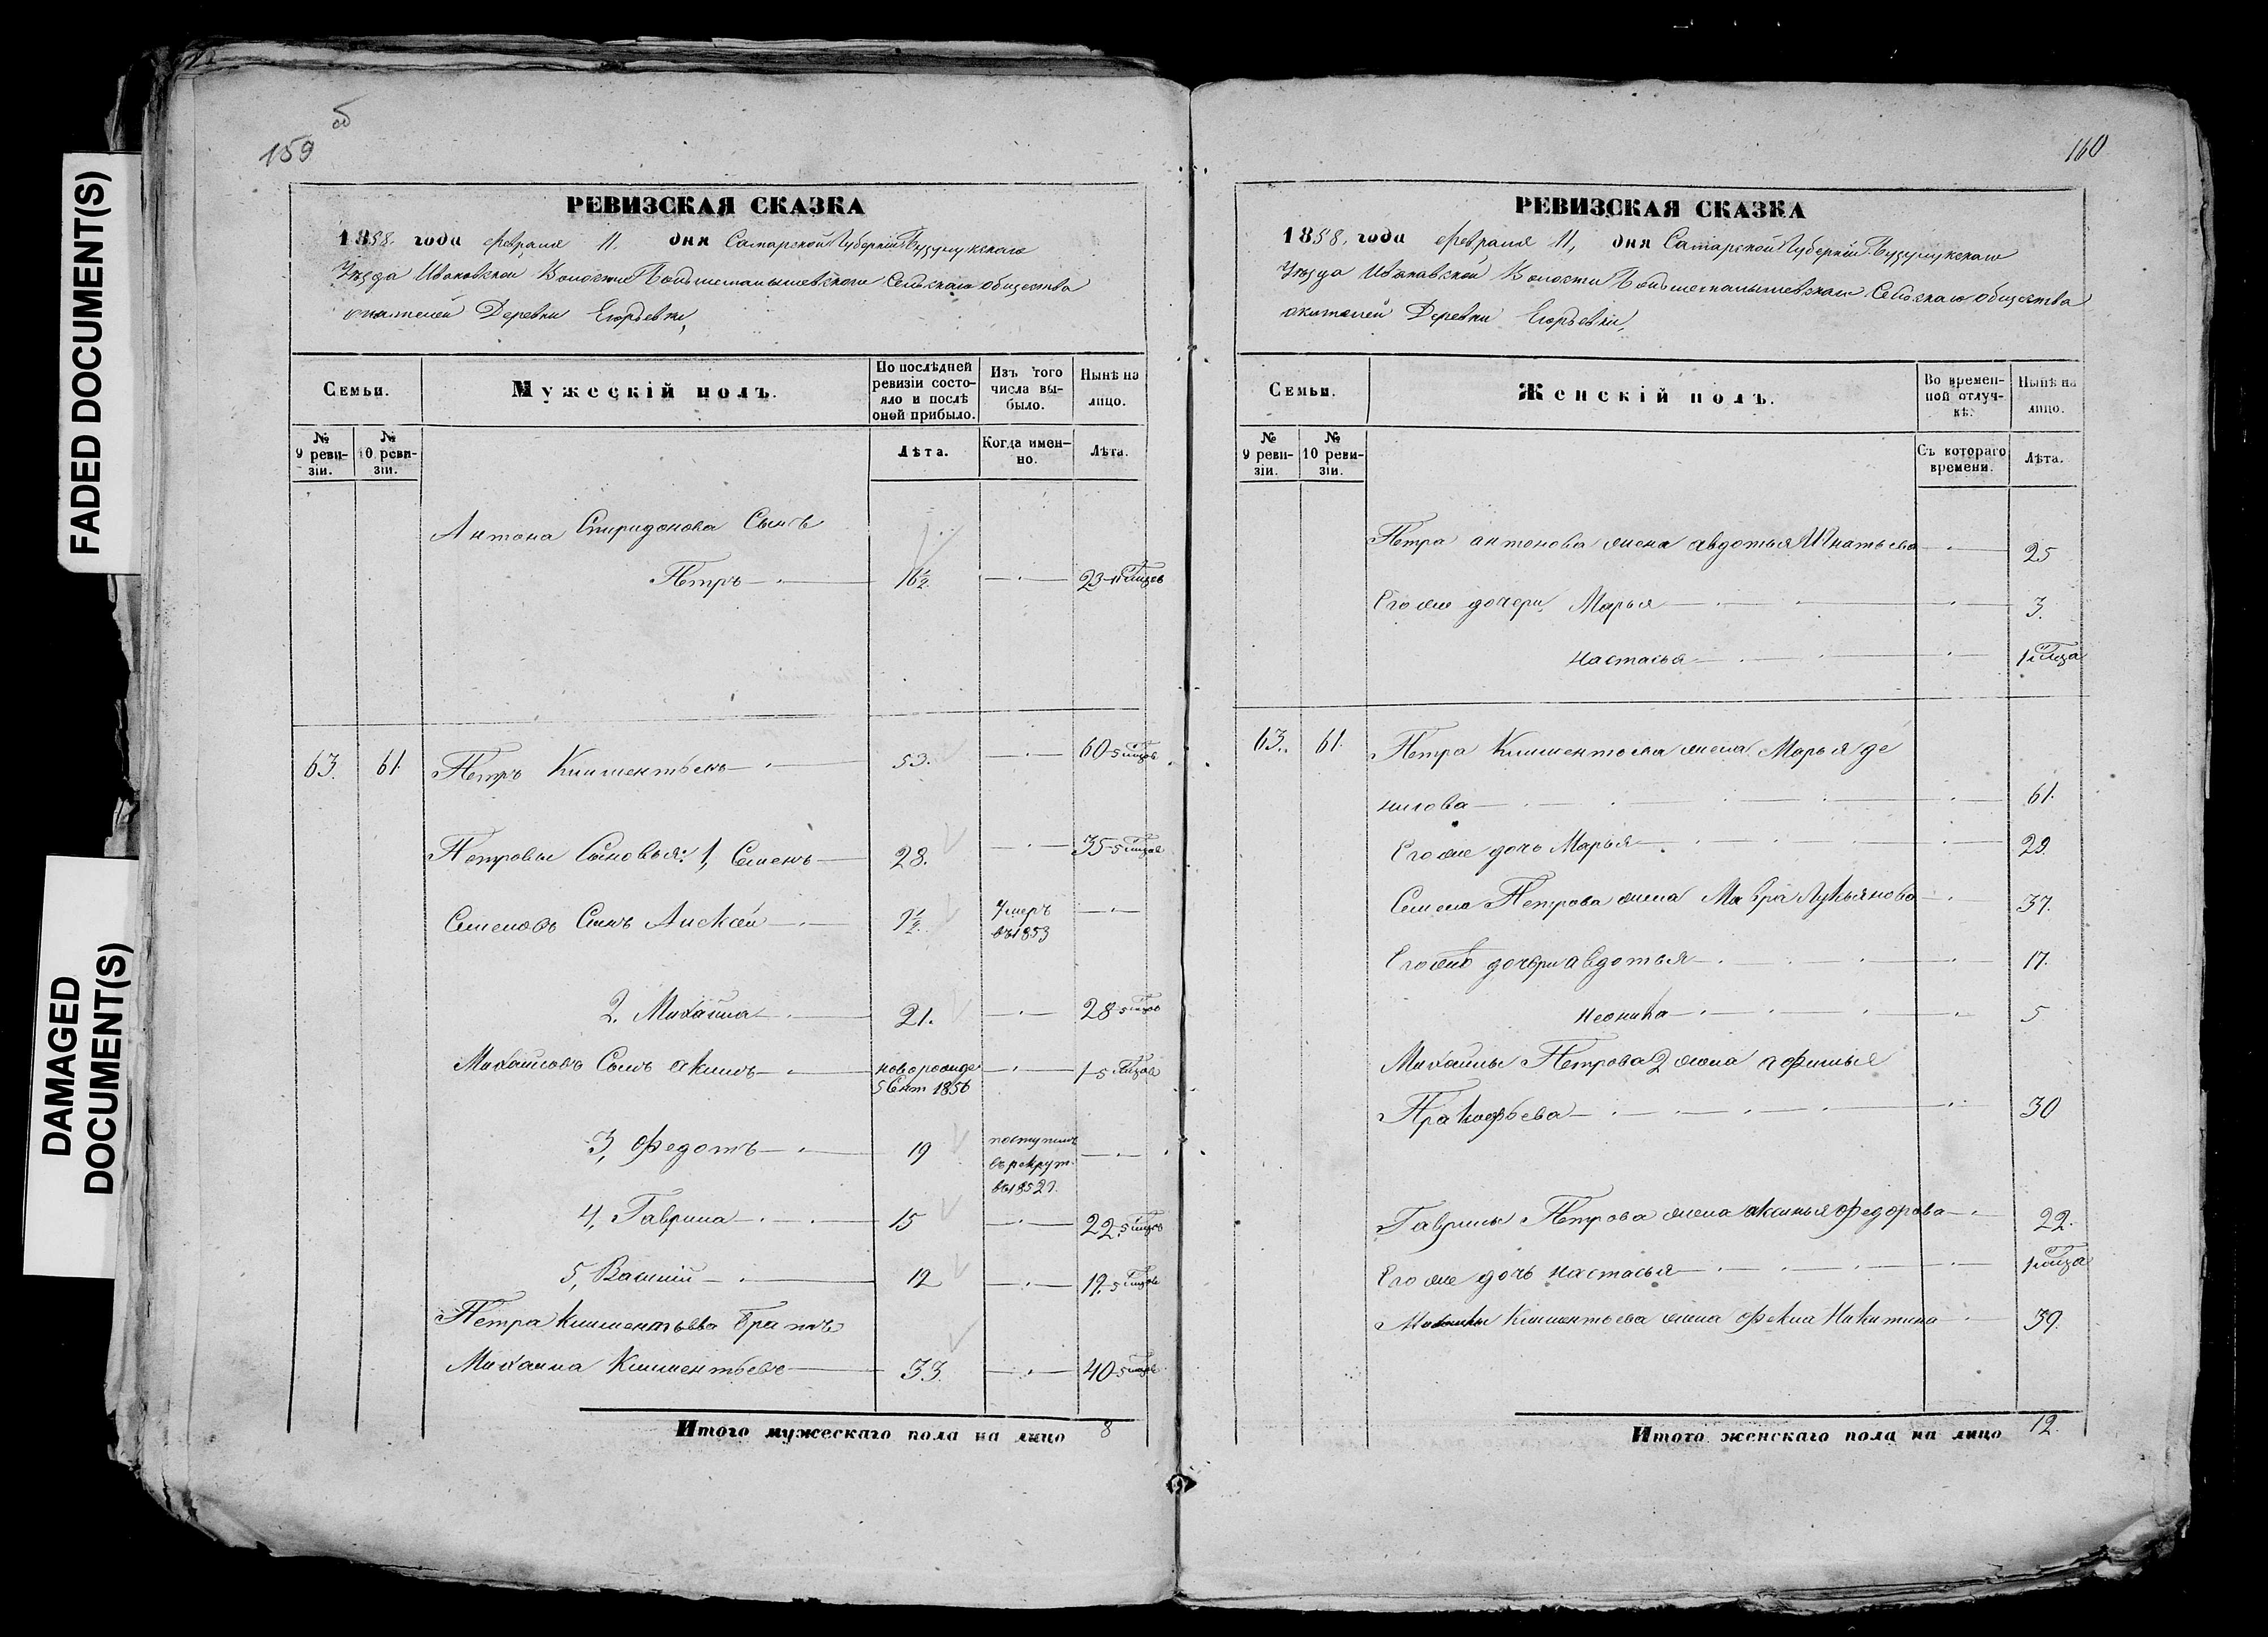 FADED DOCUMENT(S)
DAMAGED DOCUMENT(S)
159 об
РЕВИЗСКАЯ СКАЗКА
1858. года февраля 11. дня Самарской Губерніи Бузулукскаго
Уѣзда Ивановской Волости Сельскаго общества
Деревни Егорьевки,
Семьи.
Мужескій полъ.
По послѣдней ревизіи состояло и послѣ оной прибыло.
Изъ того числа выбыло.
Нынѣ на лицо.
№ 9 ревизіи.
№ 10 ревизіи.
Лѣта.
Когда именно.
Лѣта.
Антона Спиридонова Сынъ
Петръ 16½ 23
63. 61 Петръ Климентьевъ 53. 60-5
Петровы Сыновья: 1, Семенъ 28. 35-5
Семеновъ Сынъ Алексѣй 9½ Умеръ въ 1853
2. Михайла 21. 28-5
Михайловъ Сынъ Акимъ новорожде 5 Сент 1856 1-5
3, Федотъ 19 поступилъ въ рекрут. въ 1852 г.
4, Гаврила 15 22-5
5, Василій 12 19-5
Петра Климентьева Братъ
Михаила Климентьевъ 33. 40-5
Итого мужескаго пола на лицо 8
160
РЕВИЗСКАЯ СКАЗКА
1858, года февраля 11, дня Самарской Губерніи Бузулукскаго
Уѣзда Ивановской Волости Сельскаго общества
Деревни Егорьевки,
Семьи.
Женскій полъ.
Во временной отлучкѣ.
Нынѣ на лицо.
№ 9 ревизіи.
№ 10 ревизіи.
Съ котораго времени.
Лѣта.
Петра антонова жена авдотья Игнатьева 25
Его же дочери Марья 3.
настасья 1
63. 61. Петра Климентьева жена Марья да
нилова 61.
Его же дочь Марья 29.
Семена Петрова жена Мавра Лукьянова 37.
Его же дочери авдотья 17.
5
Михайлы Петрова 2 жена афимья
Пракофьева 30
Гаврилы Петрова жена аксинья федорова 22.
Его же дочь настасья
Климентьева жена фекла Никитина 39.
Итого женскаго пола на лицо 12.